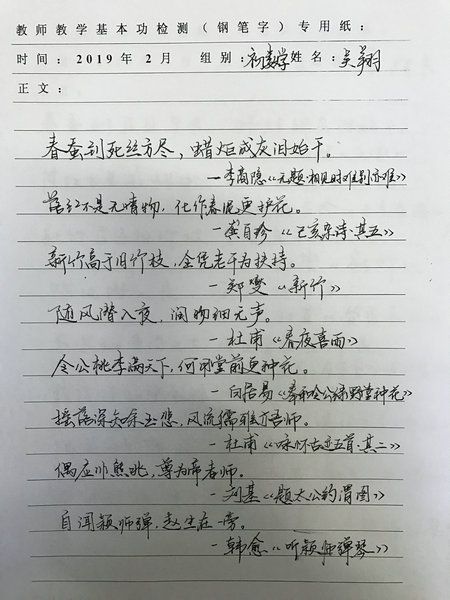 教师教学基本功检测（钢笔字）专用纸：
时间：2019年2月 组别：初数学 姓名：吴翔
正文：
春蚕到死丝方尽，蜡炬成灰泪始干。
—李商隐《无题·相见时难别亦难》
落红不是无情物，化作春泥更护花。
—龚自珍《己亥杂诗·其五》
新竹高于旧竹枝，全凭老干为扶持。
—郑燮《新竹》
随风潜入夜，润物细无声。
—杜甫《春夜喜雨》
令公桃李满天下，何用堂前更种花。
—白居易《奉和令公绿野堂种花》
摇落深知宋玉悲，风流儒雅亦吾师。
—杜甫《咏怀古迹五首·其二》
偶应非熊兆，尊为帝者师。
—刘基《题太公钓渭图》
自闻颖师弹，起坐在一旁。
—韩愈《听颖师弹琴》